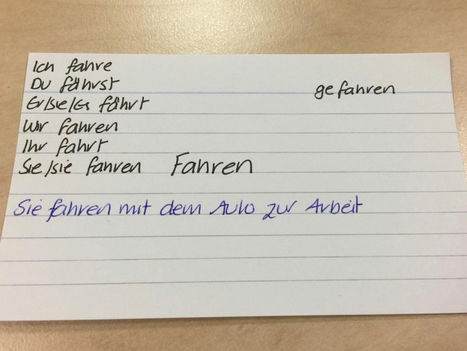 Ich fahre
Du fährst
Er/sie/es fährt
gefahren
Wir fahren
Ihr fahrt
Sie/sie fahren Fahren
Sie fahren mit dem Auto zur Arbeit